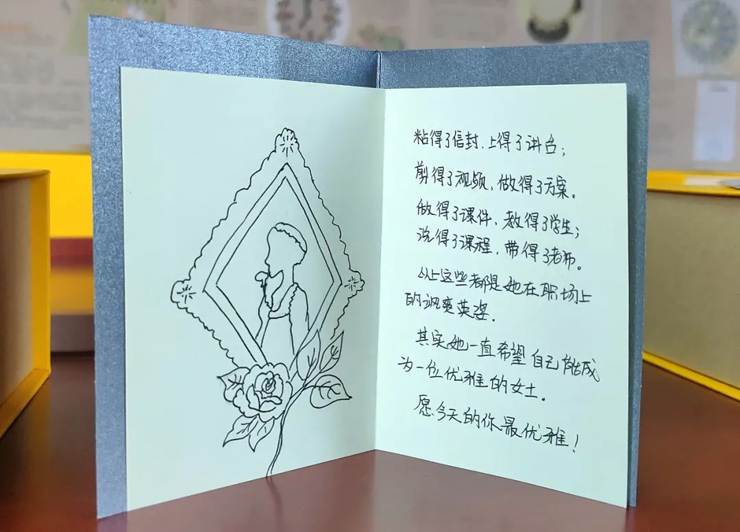 粘得了信封、上得了讲台；
剪得了视频，做得了方案。
做得了课件、教得了学生；
说得了课程，带得了老师。
以上这些都是她在职场上
的飒爽英姿。
其实她一直希望自己能成
为一位优雅的女士。
愿今天的你最优雅！